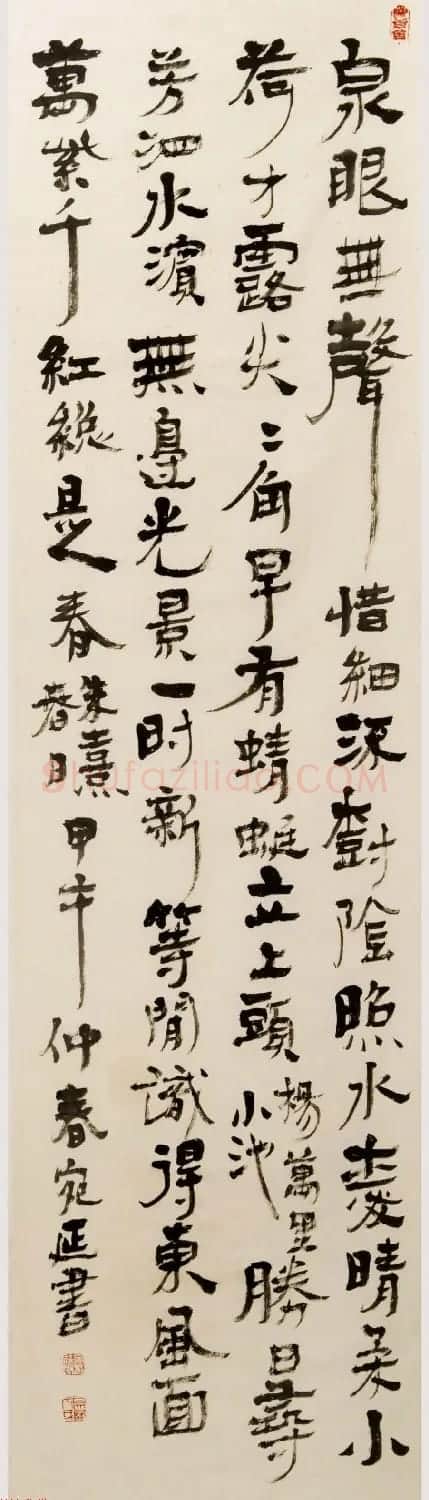 泉眼無聲惜細流樹陰照水愛晴柔小
荷才露尖〻角早有蜻蜓立上頭楊萬里小池勝日尋
芳泗水濱無邊光景一時新等閒識得東風面
萬紫千紅總是春朱熹春日甲午仲春宛延書
Shufaziliao.COM